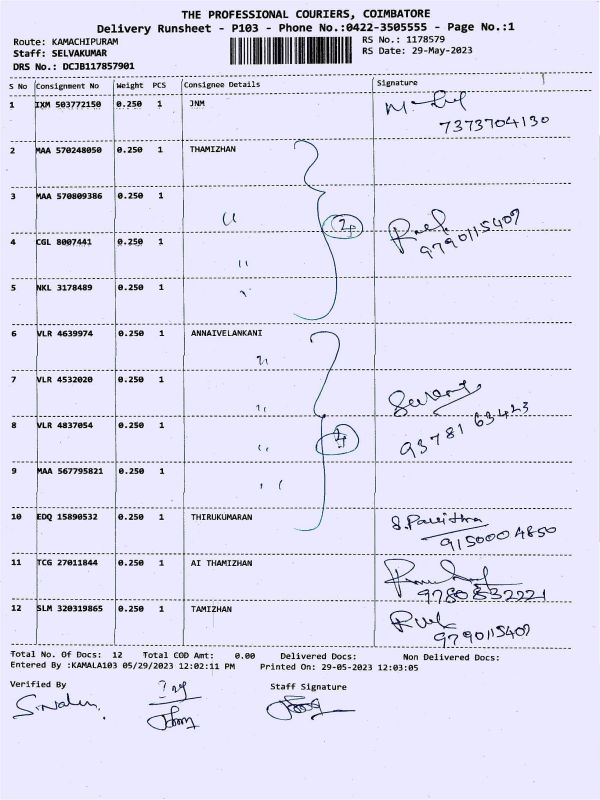 THE PROFESSIONAL COURIERS, COIMBATORE
Delivery Runsheet - P103 - Phone No.:0422-3505555 - Page No.:1
Route: KAMACHIPURAM
RS No.: 1178579
Staff: SELVAKUMAR
RS Date: 29-May-2023
DRS No.: DCJB117857901
S No Consignment No Weight PCS Consignee Details Signature
1 IXM 503772150 0.250 1 JNM
7373704130
2 MAA 570248050 0.250 1 THAMIZHAN
3 MAA 570809386 0.250 1 "
4 CGL 8007441 0.250 1 "
9790115407
5 NKL 3178489 0.250 1 "
6 VLR 4639974 0.250 1 ANNAIVELANKANI
"
7 VLR 4532020 0.250 1 "
8 VLR 4837054 0.250 1 "
93781 63423
9 MAA 567795821 0.250 1 "
10 EDQ 15890532 0.250 1 THIRUKUMARAN S. Pavithra
9150004850
11 TCG 27011844 0.250 1 AI THAMIZHAN
9780832221
12 SLM 320319865 0.250 1 TAMIZHAN
9790115407
Total No. Of Docs: 12 Total COD Amt: 0.00 Delivered Docs: Non Delivered Docs:
Entered By :KAMALA103 05/29/2023 12:02:11 PM Printed On: 29-05-2023 12:03:05
Verified By Staff Signature